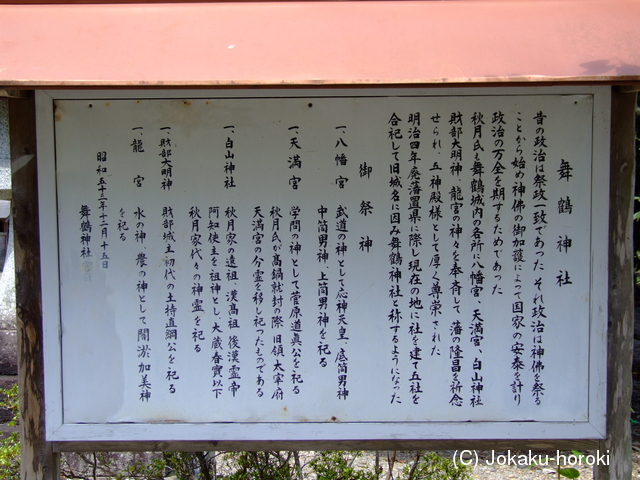 舞鶴神社
昔の政治は祭政一致であった それ政治は神佛を祭る
ことから始め神佛の御加護によって国家の安泰を計り
政治の万全を期するためであった
秋月氏も舞鶴城内の各所に八幡宮、天満宮、白山神社
財部大明神、龍宮の神々を奉斉して 藩の隆昌を祈念
せられ、五神殿様として厚く尊崇された
明治四年廃藩置県に際し現在の地に社を建て五社を
合祀して旧城名に因み舞鶴神社と称するようになった
御祭神
一、八幡宮 武道の神として応神天皇、底筒男神
中筒男神、上筒男神を祀る
一、天満宮 学問の神として菅原道眞公を祀る
秋月氏が高鍋就封の際 旧領太宰府
天満宮の分霊を移し祀ったものである
一、白山神社 秋月家の遠祖、漢高祖 後漢霊帝
阿知使主を祖神とし、大蔵春實以下
秋月家代々の神霊を祀る
一、財部大明神 財部城主初代の土持直綱公を祀る
一、龍宮 水の神、農の神として闇淤加美神
を祀る
昭和五十三年十二月十五日
舞鶴神社
(C) Jokaku-horoki